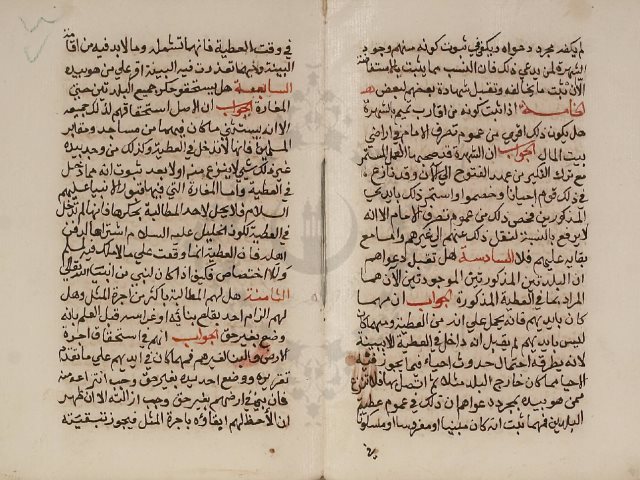 لم يكفه مجرد دعواه ويكفي في ثبوت كونه منهم وجود
الشهرة لمن يدعي ذلك فان النسب مما يثبت بالاستفاضة
الآن ثبت ما يخالفه وتقبل شهادة بعضهم لبعض
الخامسة اذا ثبت كونه من اقارب تميم بالشهرة
هل يكون ذلك اقوى من عموم تصرف الامام في اراضي
بيت المال الجواب ان الشهرة قد صحبها العمل المستمر
مع ترك النكير من عهد الفتوح الى الآن وقد نازع
في ذلك قوم احيانا وخصموا واستمر ذلك بايدي
المذكورين فخص ذلك من عموم تصرف الامام الا انه
لا يرفع بالسنة لنقل ذلك عنهم الى غيرهم والمسامع
بقاه عليهم فلا السادسة هل تقبل دعواهم
ان البلدتين المذكورتين الموجودتين الان هما
المراد بهما في العطية المذكورة الجواب ان مهما
كان بايديهم فانه يحمل على انه من العطية ومهما كان
ليس بايديهم لم يقبل انه داخل في العطية الا ببينة
لانه يطرقه احتمال حدوث احياء فيما يجوز فيه
احيا ما كان خارج البلد مثلا بما اتصل بها فلا تنزع
ممن هو بيده بمجرد دعواهم ان ذلك في عموم عطية
البلدين فمهما ثبت انه كان مبنيا او مغروسا او مسكونا
في وقت العطية فانهما تشتمله وما لا بد فيه من اقامة
البينة ومهما تعذرت فيه البينة اقر على من هو بيده
السابعة هل يستحقون حكر جميع البلدتين حتى
المغارة الجواب ان الاصل استحقاقهم لذلك جميعه
الا انه يستثنى ما كان فيهما من مساجد ومقابر
المسلمين فانها لا تدخل في العطية وكذلك من وجد بيده
غير ذلك شيء لا ينزع منه الا بعد ثبوت انه مما دخل
في العطية واما المغارة التي فيها قبور الانبيا عليهم
السلام فلا يحل لاحد المطالبة بحكرها فانها لم تدخل
في العطية لكون الخليل عليه السلام اشتراها لدفن
اهله فان العطية انما وقعت على ما لا ملك فيه لمسلم
ولا اختصاص فكيف اذا كان لنبي من انبياء الله تعالى
الثامنة هل لهم المطالبة باكثر من اجرة المثل وهل
لهم الزام احد بقلع بنائه او غراسه قبل العلم بانه
وضع بغير حق الجواب انهم في استحقاق اجرة
الارض والعين كغيرهم فمهما كان في ايديهم على ما تقدم
تقريره ووضع احد يده بغير حق وجب انتزاعه منه
فان بنى في ارضهم بغير حق وجب ازالته الا ان ظهر
ان الاحظ لهم ابقاؤه باجرة المثل فيجوز تبقيته